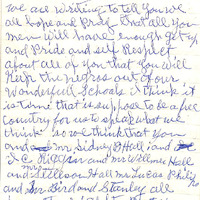 we are writing to tell you we
all hope and Pray that all you
men will have enough get up
and Pride and self Respect
about all of you that you will
Keep the negros out of our
Wonderfull Schools I think it
is time that is suppose to be a free
country for us to speak what we
think so we think that you
and Mr Sidney D Hill and
J C and mr Williams Hall
and Hall mr Lucas Philip
and Bird and Stanley all